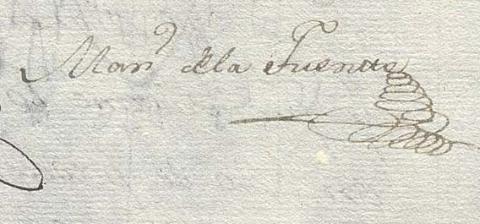 Manl dela Fuente